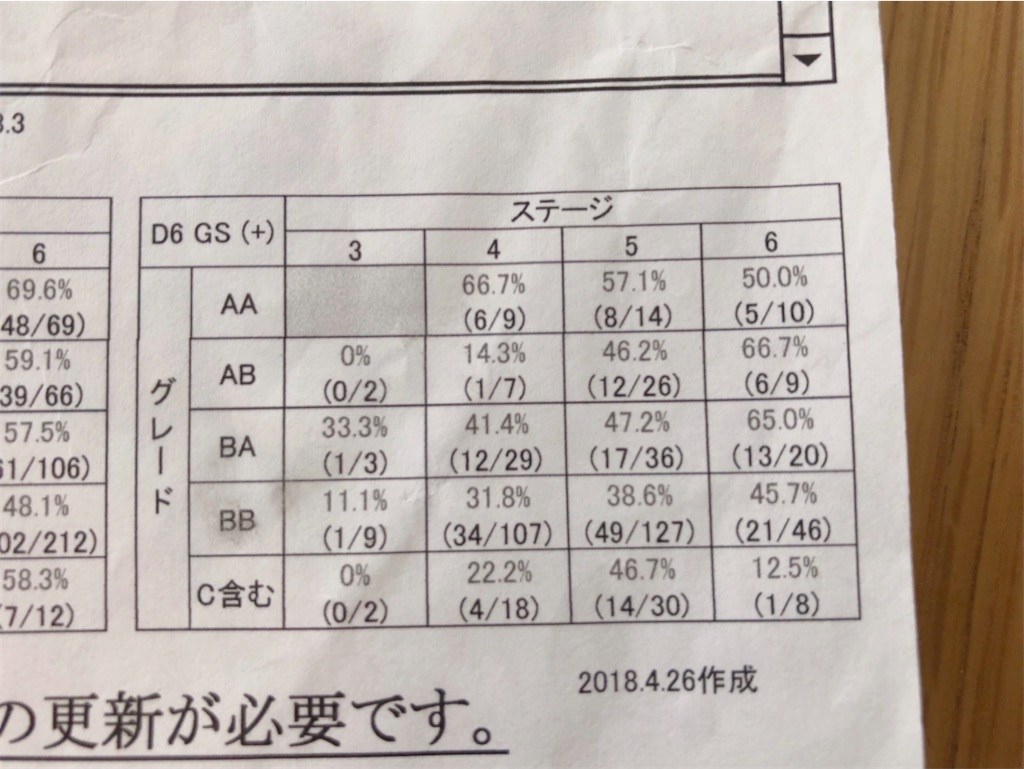 3.3
6
69.6%
48/69)
59.1%
39/66)
57.5%
61/106)
48.1%
02/212)
58.3%
7/12)
D6 GS (+) ステージ
3 4 5 6
グレード
AA 66.7% 57.1% 50.0%
(6/9) (8/14) (5/10)
AB 0% 14.3% 46.2% 66.7%
(0/2) (1/7) (12/26) (6/9)
BA 33.3% 41.4% 47.2% 65.0%
(1/3) (12/29) (17/36) (13/20)
BB 11.1% 31.8% 38.6% 45.7%
(1/9) (34/107) (49/127) (21/46)
C含む 0% 22.2% 46.7% 12.5%
(0/2) (4/18) (14/30) (1/8)
2018.4.26作成
の更新が必要です。